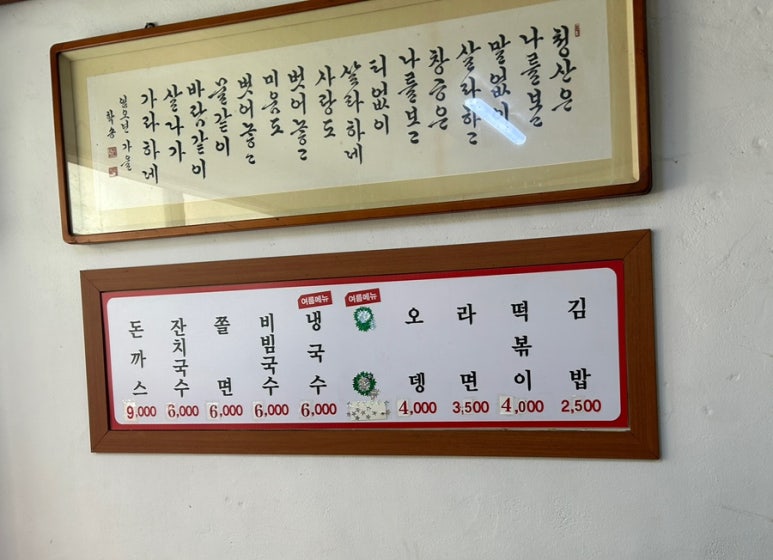 청산은
나를 보고
말없이
살라하고
창공은
나를 보고
티없이
살라하네
사랑도
벗어놓고
미움도
벗어놓고
물같이
바람같이
살다가
가라하네
임오년 가을
학송
김밥 2,500
떡볶이 4,000
라면 3,500
오뎅 4,000
여름메뉴
여름메뉴
냉국수 6,000
비빔국수 6,000
쫄면 6,000
잔치국수 6,000
돈까스 9,000